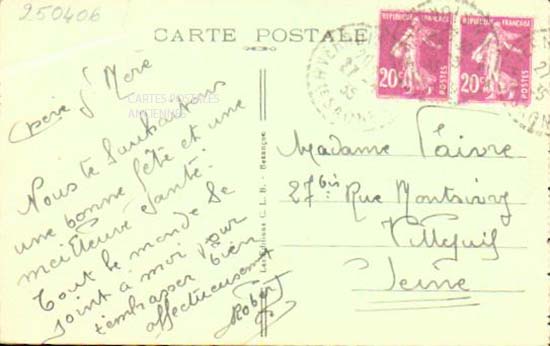 250406
CARTE POSTALE
CARTES POSTALES
ANCIENNES
Mère
Nous te souhaitons
une bonne fête et une
meilleure santé.
Tout le monde se
joint à moi pour
t'embrasser bien
affectueusement
Robert
Les Editions C. L. B. - Besançon
REPUBLIQUE FRANCAISE
20c
POSTES
REPUBLIQUE FRANCAISE
20c
POSTES
27
35
Madame Faivre
27 bis Rue
Villejuif
Seine